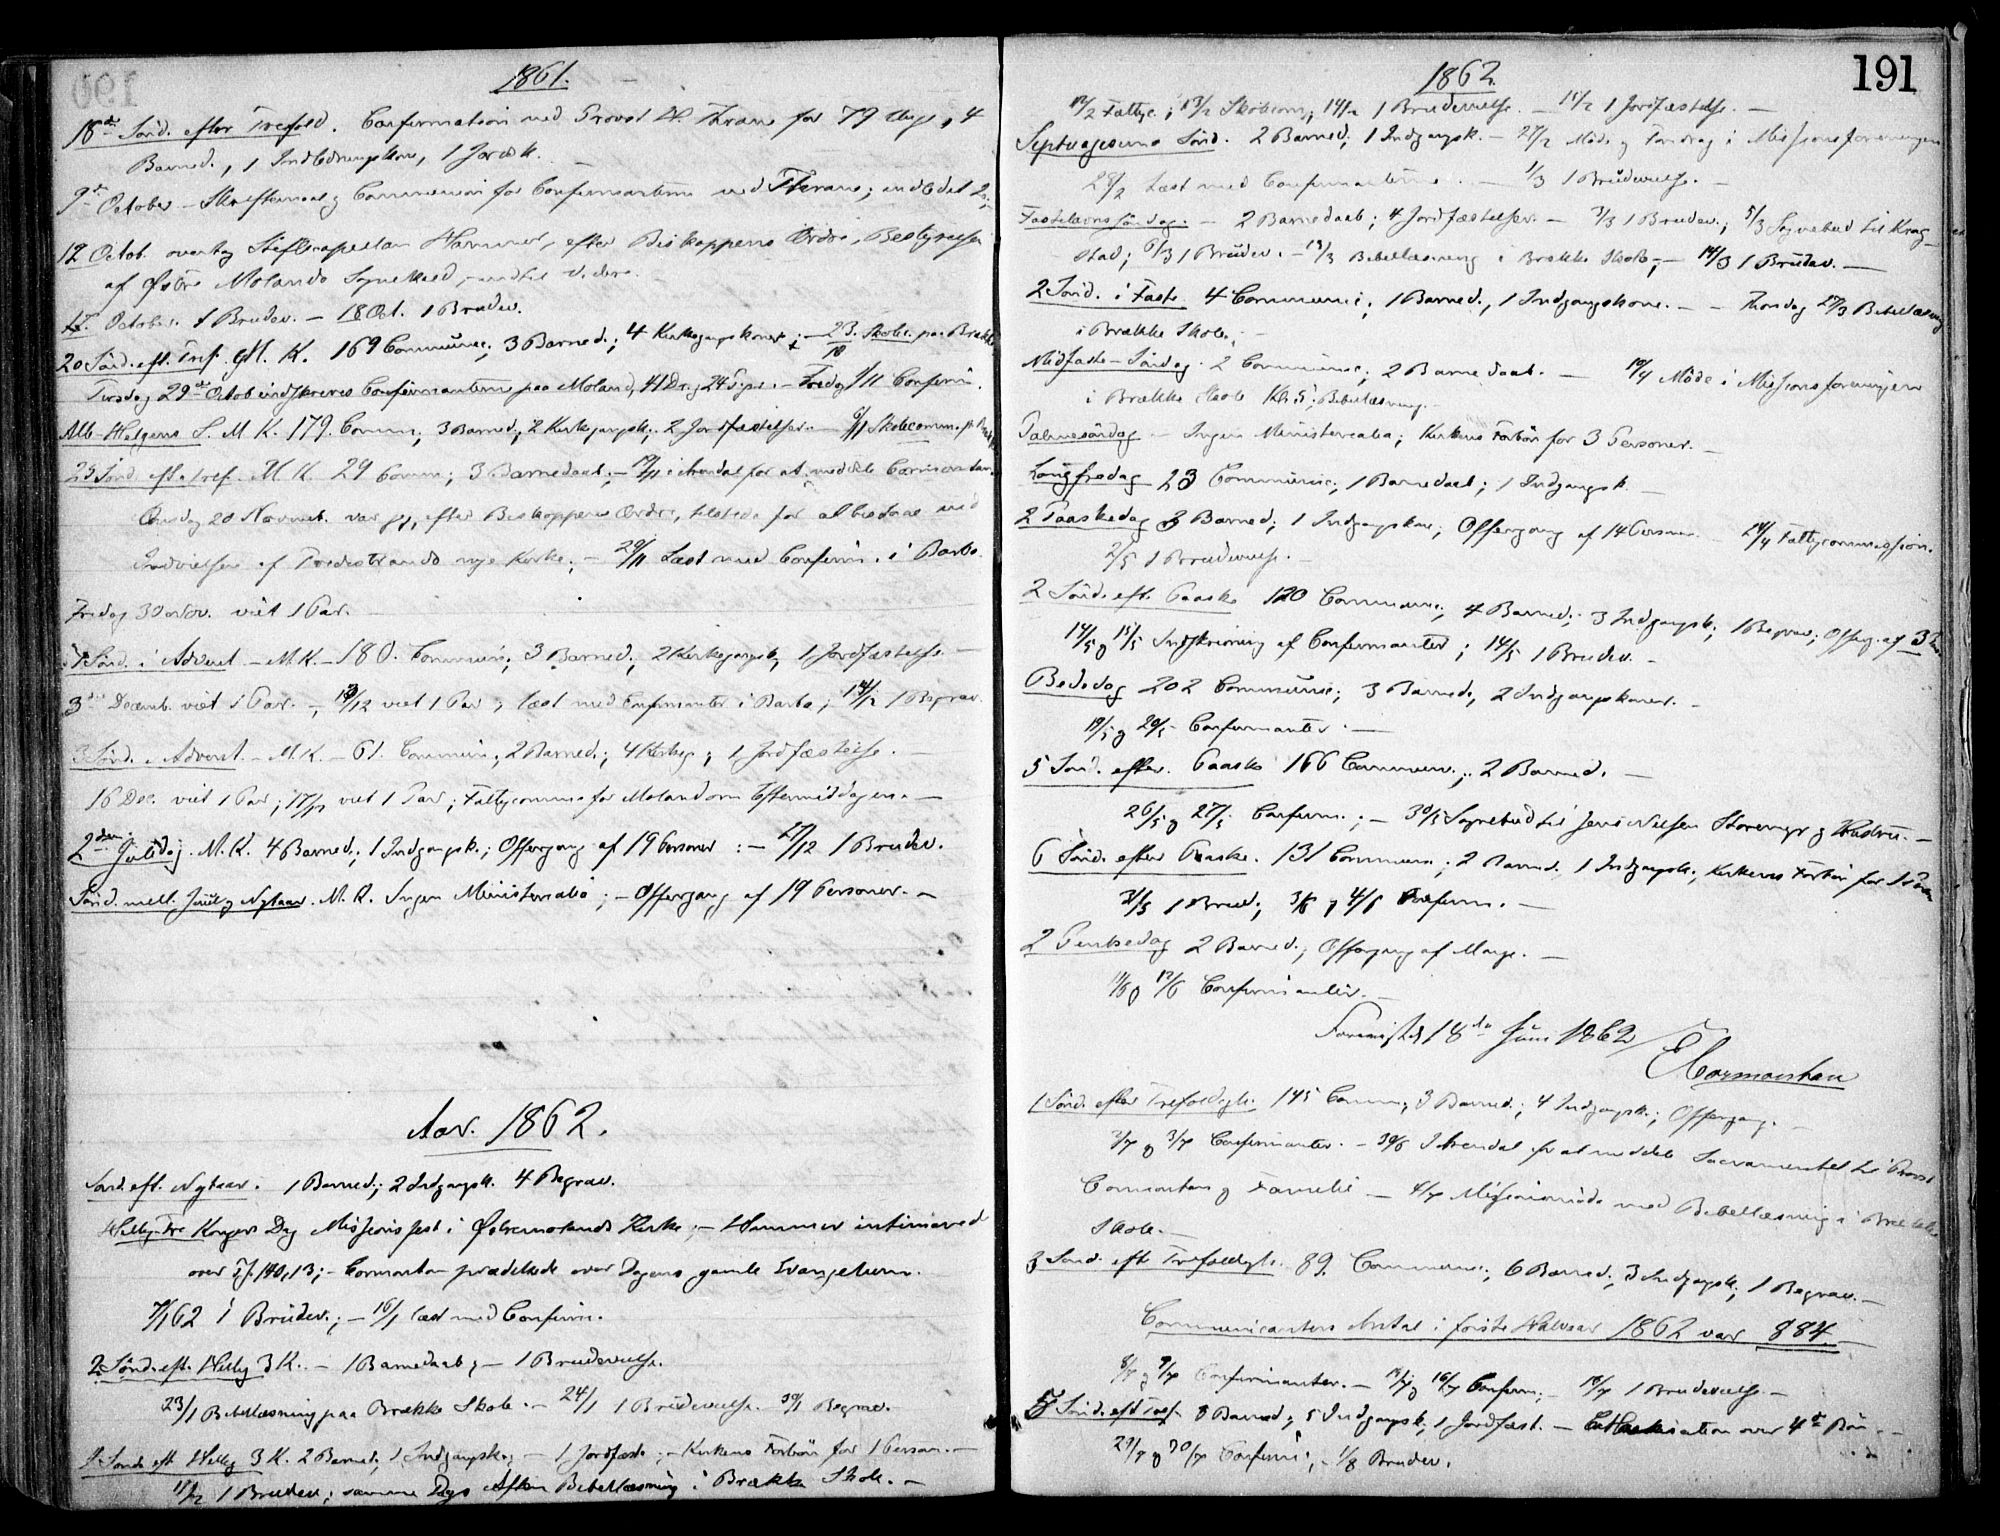 1861.
18de Sönd. efter Trefold. Confirmation ved Provst H. Thrane for 79 Unge, 4
Barned., 1 Indledningskone, 1 Jordf.
9de October – Skriftemaal og Communion for Confirmanterne ved Thrane; indledet 2
12 Octob. overtog Stiftscapellan Hammer, efter Biskoppens Ordre, Bestyrelsen
af Östre Molands Sognekald, indtil videre.
17. October. 1 Brudev. – 18 Oct. 1 Brudev.
20 Sönd. eft. Tref. M. K. 169 Commun.; 3 Barned.; 4 Kirkegangskoner; – 23/10 Skolec. paa Brække
Tirsdag 29de Octob indskreves Confirmanterne paa Moland, 41 Dr. og 24 Piger. – Fredag 1/11 Confirm.
Alle Helgens S. M. K. 179. Comm.; 3 Barned.; 2 Kirkegangsk.; 2 Jordfæstelser. – 6/11 Skolecomm.
25 Sönd. eft. Tref. M. K. 29 Comm; 3 Barnedaab; – 19/11 i Arendal for at meddele
Onsdag 20 Novemb. var jeg, efter Biskoppens Ordre, tilstede for at bistaae ved
Indvielsen af Tvedestrands nye Kirke; – 29/11 Læst med Confirm. i Barbo.
Fredag 30 Nov. viet 1 Par.
1 Sönd. i Advent – M. K. – 180. Commun; 3 Barned.; 2 Kirkegangsk, 1 Jordfæstelse. –
3die Decemb. viet 1 Par. –, 13/12 viet 1 Par og læst med Confirmanter i Barbo; 14/12 1 Begrav.
3 Sönd. i Advent. – M. K. – 61. Commun, 2 Barned.; 4 Kirkeg; 1 Jordfæstelse. –
16 Dec. viet 1 Par; 17/12 viet 1 Par; Fattigcomms for Moland om Eftermiddagen. –
2den Juledag. M. K. 4 Barned.; 1 Indgangsk.; Offergang af 19 Personer: – 27/12 1 Brudev.
Sönd. mell. Juul og Nytaar. M. K. Ingen Ministerialia; – Offergang af 19 Personer. –
Aar. 1862.
Sönd. eft. Nytaar. 1 Barned.; 2 Indgangsk. 4 Begrav.
Hellig-tre Kongers Dag Missionsfest i Östremolands Kirke; – Hammer intimered
over 140, 13; – Cormontan prædikede over Dagens gamle Evangelium.
7/1 62 1 Brudev.; – 16/1 læst med Confirm.
2 Sönd. eft. Hellig 3 K. – 1 Barnedaab; – 1 Brudevielse.
23/1 Bibellæsning paa Brække Skole. – 24/1 1 Brudevielse. 30/1 Begrav.
4 Sönd. eft Hellig 3 K. 2 Barned.; 1 Indgangsk.; – 1 Jordfæst. – Kirkens Forbön for 1 Person. –
11/2 1 Brudev; samme Dags Aften Bibellæsning i Brække Skole. –
191
1862.
12/2 Fattigc.; 13/2 Skolecom; 14/2 1 Brudevielse. – 15/2 1 Jordfæstelse. –
Septuagesima Sönd. 2 Barned; 1 Indgangsk. – 27/2 Möde og Foredrag i Missionsforeningen
28/2 Læst med Confirmanterne. – 1/3 1 Brudevielse. –
Fastelavnssöndag. – 2 Barnedaab; 4 Jordfæstelser. – 3/3 1 Brudev.; 5/3 Sognebud til Krog-
stad; 6/3 1 Brudev. – 13/3 Bibellæsning i Brække Skole; – 14/3 1 Brudev. –
2 Sönd. i Faste 4 Communic; 1 Barned., 1 Indgangskone. – – Thorsdag 27/3 Bibellæsning
i Brække Skole. –
Midfaste-Söndag. 2 Communic; 2 Barnedaab. – 10/4 Möde i Missionsforeningen
i Brække Skole Kl. 5; Bibellæsning. –
Palmesöndag – Ingen Ministerialia; Kirkens Forbön for 3 Personer. –
Langfredag 23 Communic; 1 Barnedaab; 1 Indgangsk. –
2 Paaskedag 3 Barned; 1 Indgangskone; Offergang af 14 Personer Fattigcommission.
2/5 1 Brudevielse. –
2 Sönd. eft. Paaske 120 Commune; 4 Barned; 3 Indgangsk; 1 Begrav; Offerg. af 3
14/5 og 15/5 Indskrivning af Confirmanter; 14/5 1 Brudev. –
Bededag 202 Communic; 3 Barned., 2 Indgangskoner. –
19/5 og 20/5 Confirmanter. –
5 Sönd. efter Paaske 166 Commun.; 2 Barned. –
26/5 og 27/5 Confirm.; – 30/5 Sognebud til Jens Nielsen Storemyr og Hustru. –
6 Sönd. efter Paaske. 131 Commun; 2 Barned. 1 Indgangsk.; Kirkens Forbön for
31/5 1 Brud.; 3/6 og 4/6 Confirm. –
2 Pintsedag 2 Barned.; Offergang af Mange. –
11/6 og 12/6 Confirmanter. –
Forevist d. 18de Juni 1862/
Cormontan
1 Sönd. efter Trefoldigh. 145 Comm; 3 Barned.; 4 Indgangsk.; Offergang. –
2/7 og 3/7 Confirmanter. – 30/6 I Arendal for at meddele Sacramentet til Provst
Cormontan og Familie – 4/7 Missionsmöde med Bibellæsning i Brække
Skole. –
3 Sönd. eft Trefoldigh. 89. Commune; 6 Barned; 3 Indgangsk; 1 Begrav. –
Communicanters Antal i förste Halvaar 1862 var 884. –
8/7 og 9/7 Confirmanter. – og 16/7 Confirm; – 1 Brudevielse –
5 Sönd. eft Tref. 8 Barned; 5 Indgangsk; 1 Jordfæst. – Catkekisation over 4de Bön –
29/7 og 30/7 Confirm; – 1/8 Brudev.